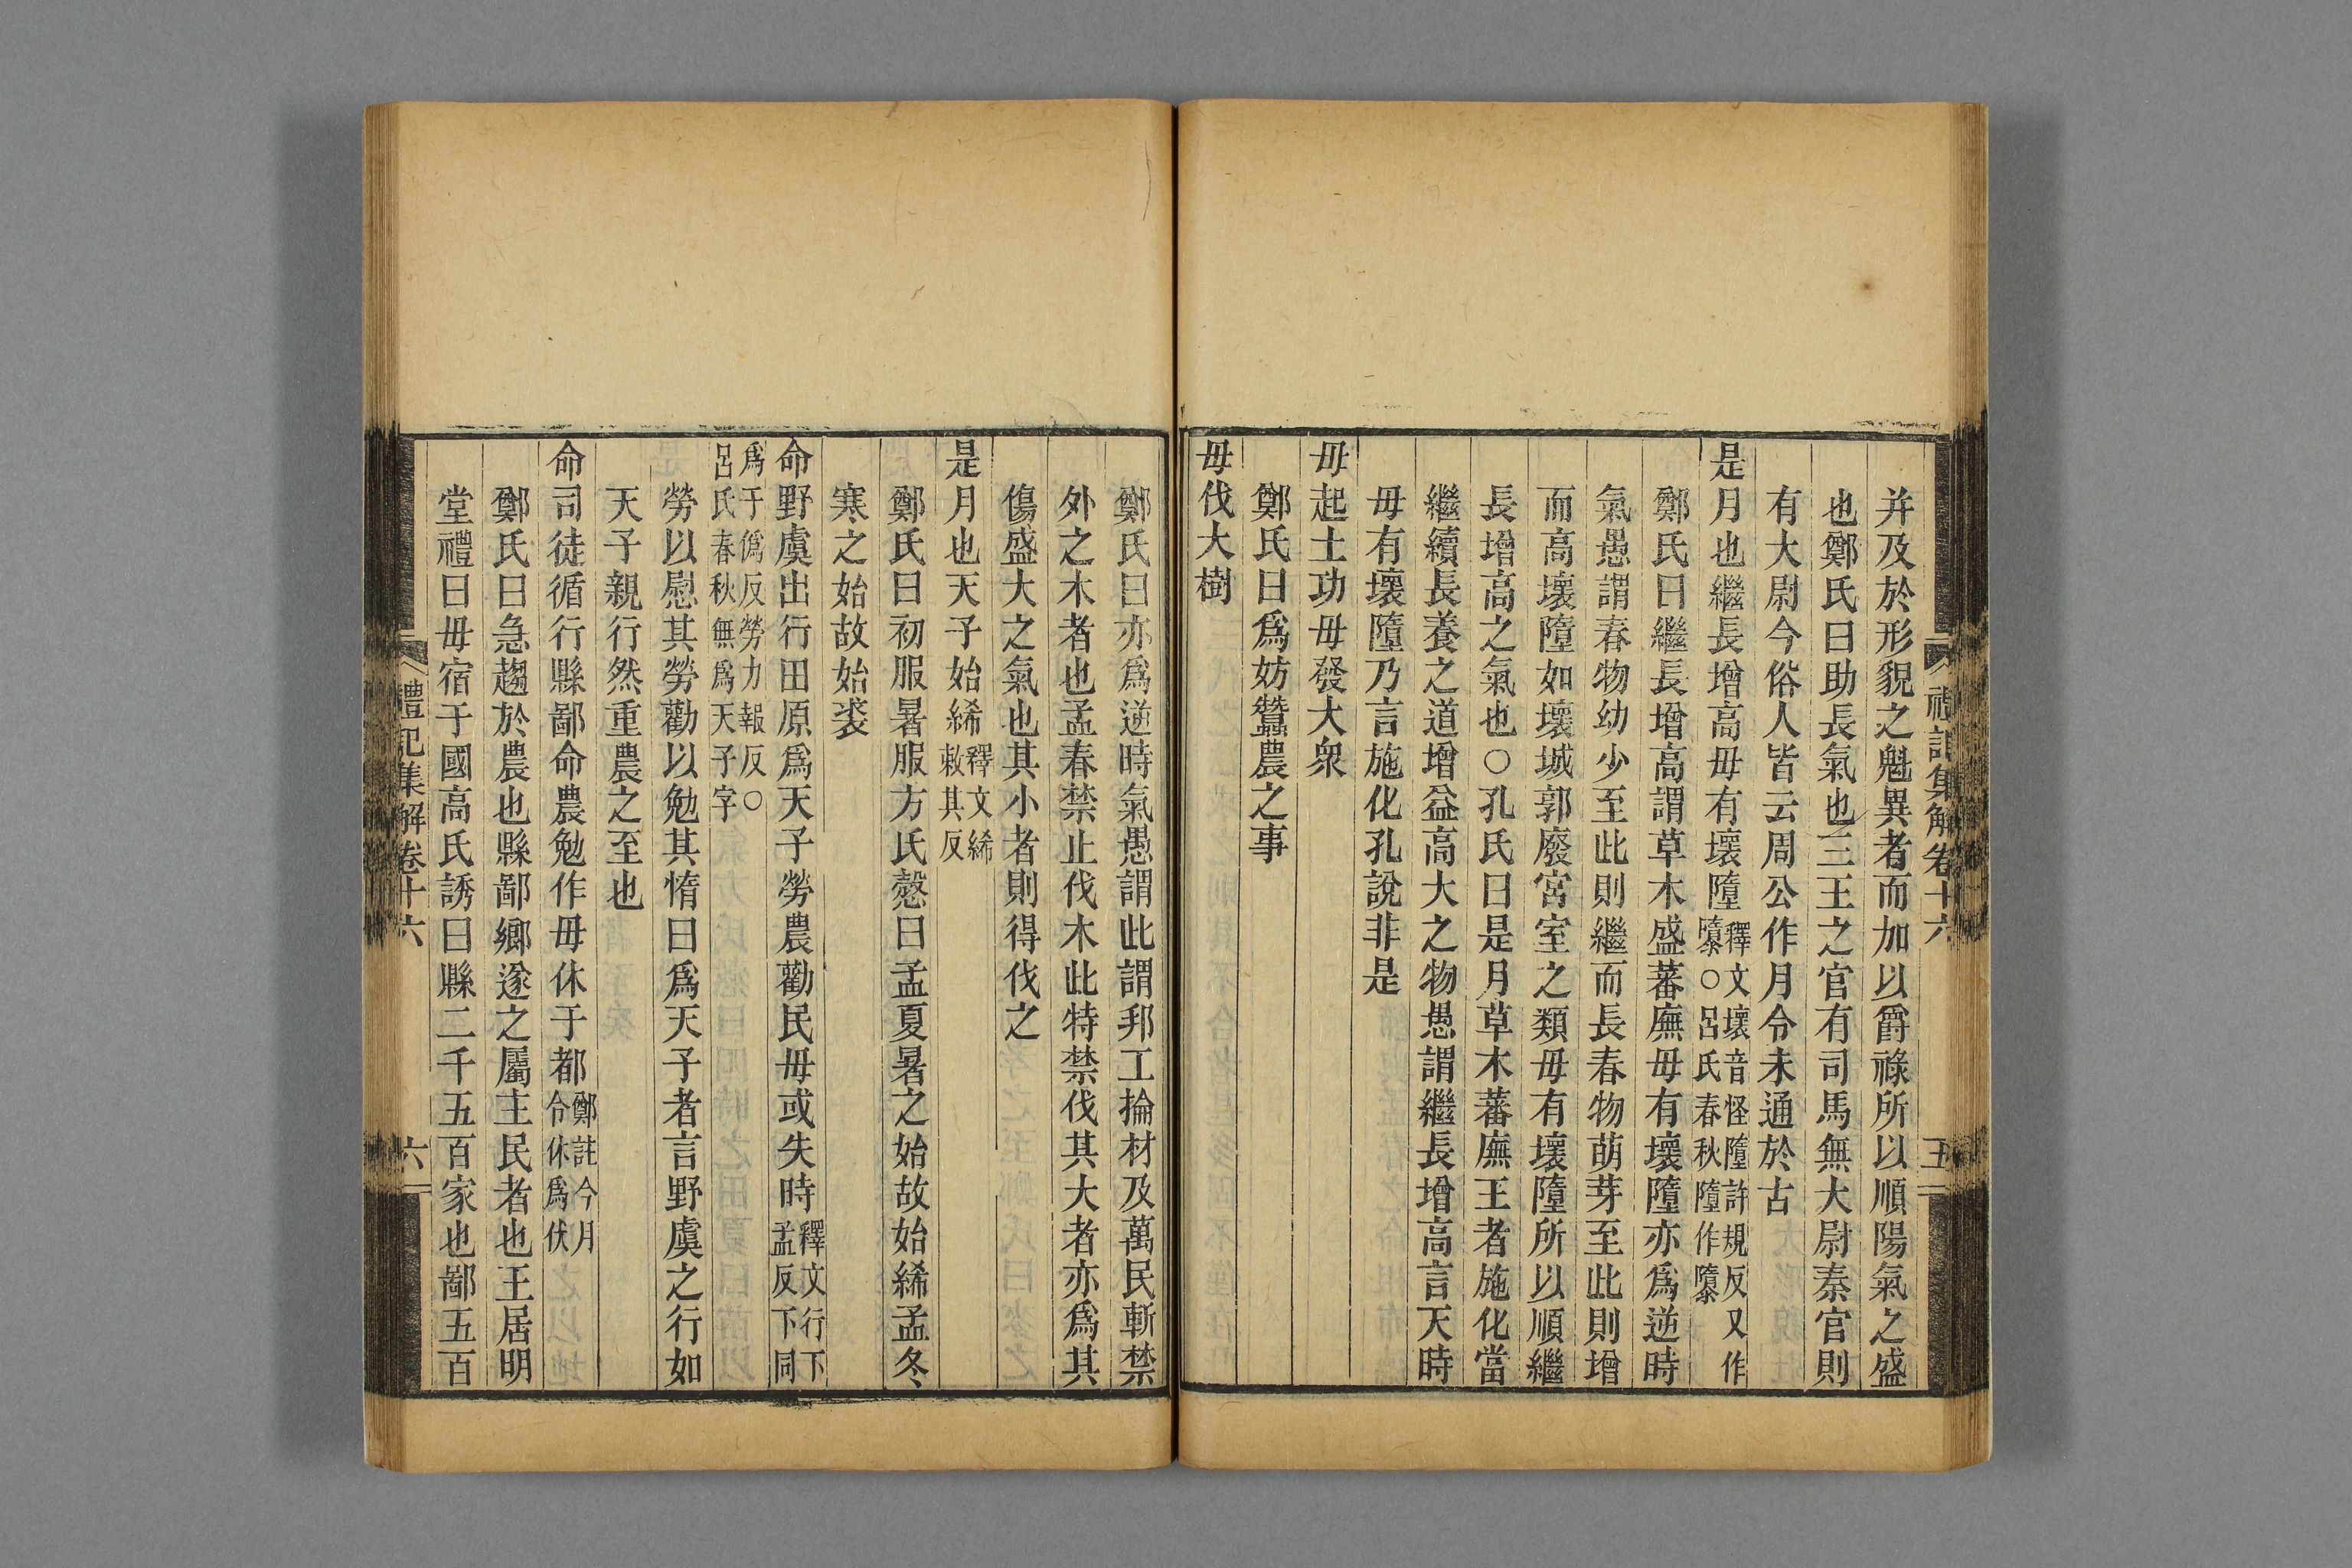 禮記集解卷十六
五
并及於形貌之魁異者而加以爵祿所以順陽氣之盛
也鄭氏曰助長氣也三王之官有司馬無大尉秦官則
有大尉今俗人皆云周公作月令未通於古
是月也繼長增高毋有壞墮釋文壞音怪墮許規反又作隳○呂氏春秋墮作隳
鄭氏曰繼長增高謂草木盛蕃廡毋有壞墮亦爲逆時
氣愚謂春物幼少至此則繼而長春物萌芽至此則增
而高壞墮如壞城郭廢宮室之類毋有壞墮所以順繼
長增高之氣也○孔氏曰是月草木蕃廡王者施化當
繼續長養之道增益高大之物愚謂繼長增高言天時
毋有壞墮乃言施化孔說非是
毋起土功毋發大衆
鄭氏曰爲妨蠶農之事
毋伐大樹
鄭氏曰亦爲逆時氣愚謂此謂邦工掄材及萬民斬禁
外之木者也孟春禁止伐木此特禁伐其大者亦爲其
傷盛大之氣也其小者則得伐之
是月也天子始絺釋文絺敕其反
鄭氏曰初服暑服方氏慤曰孟夏暑之始故始絺孟冬
寒之始故始裘
命野虞出行田原爲天子勞農勸民毋或失時釋文行下孟反下同
爲于僞反勞力報反○呂氏春秋無爲天子字
勞以慰其勞勸以勉其惰曰爲天子者言野虞之行如
天子親行然重農之至也
命司徒循行縣鄙命農勉作毋休于都鄭註今月令休爲伏
鄭氏曰急趨於農也縣鄙鄉遂之屬主民者也王居明
堂禮曰毋宿于國高氏誘曰縣二千五百家也鄙五百
禮記集解卷十六
六